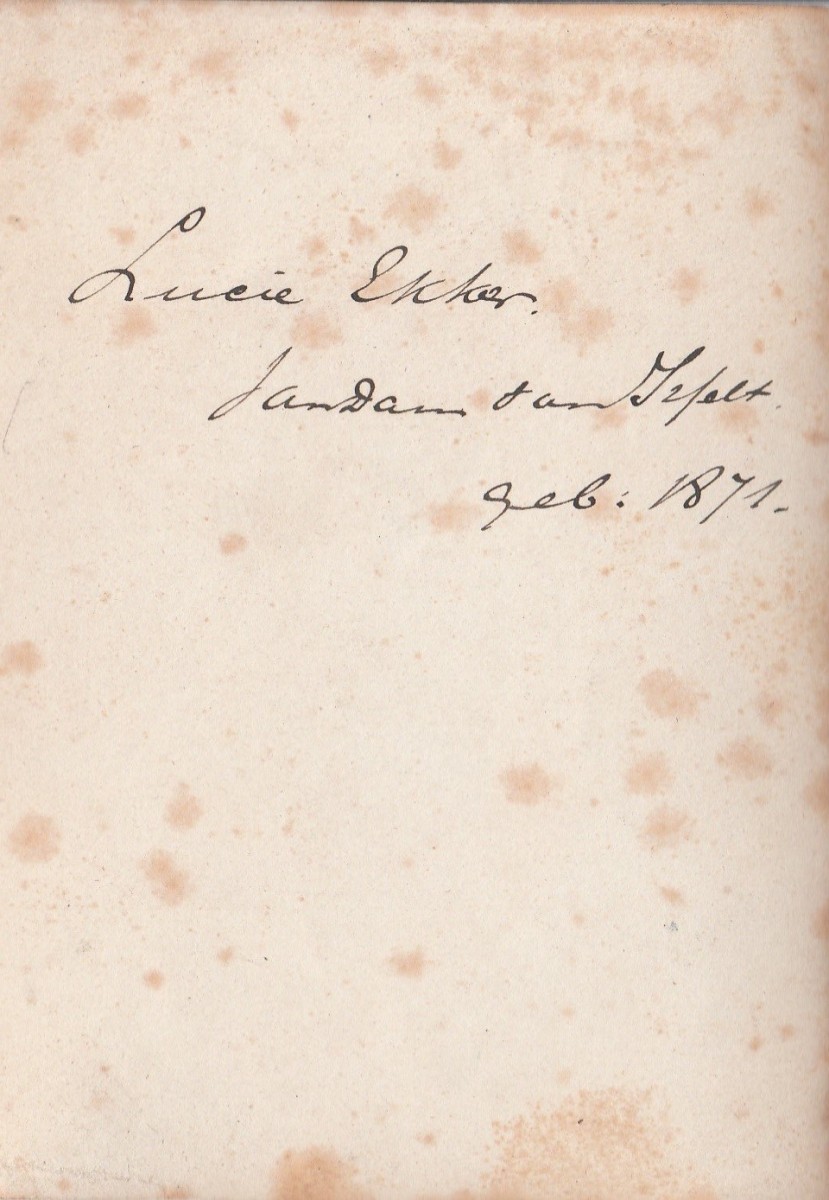 Lucie Ekker.
van Dam van Isselt.
geb: 1871.